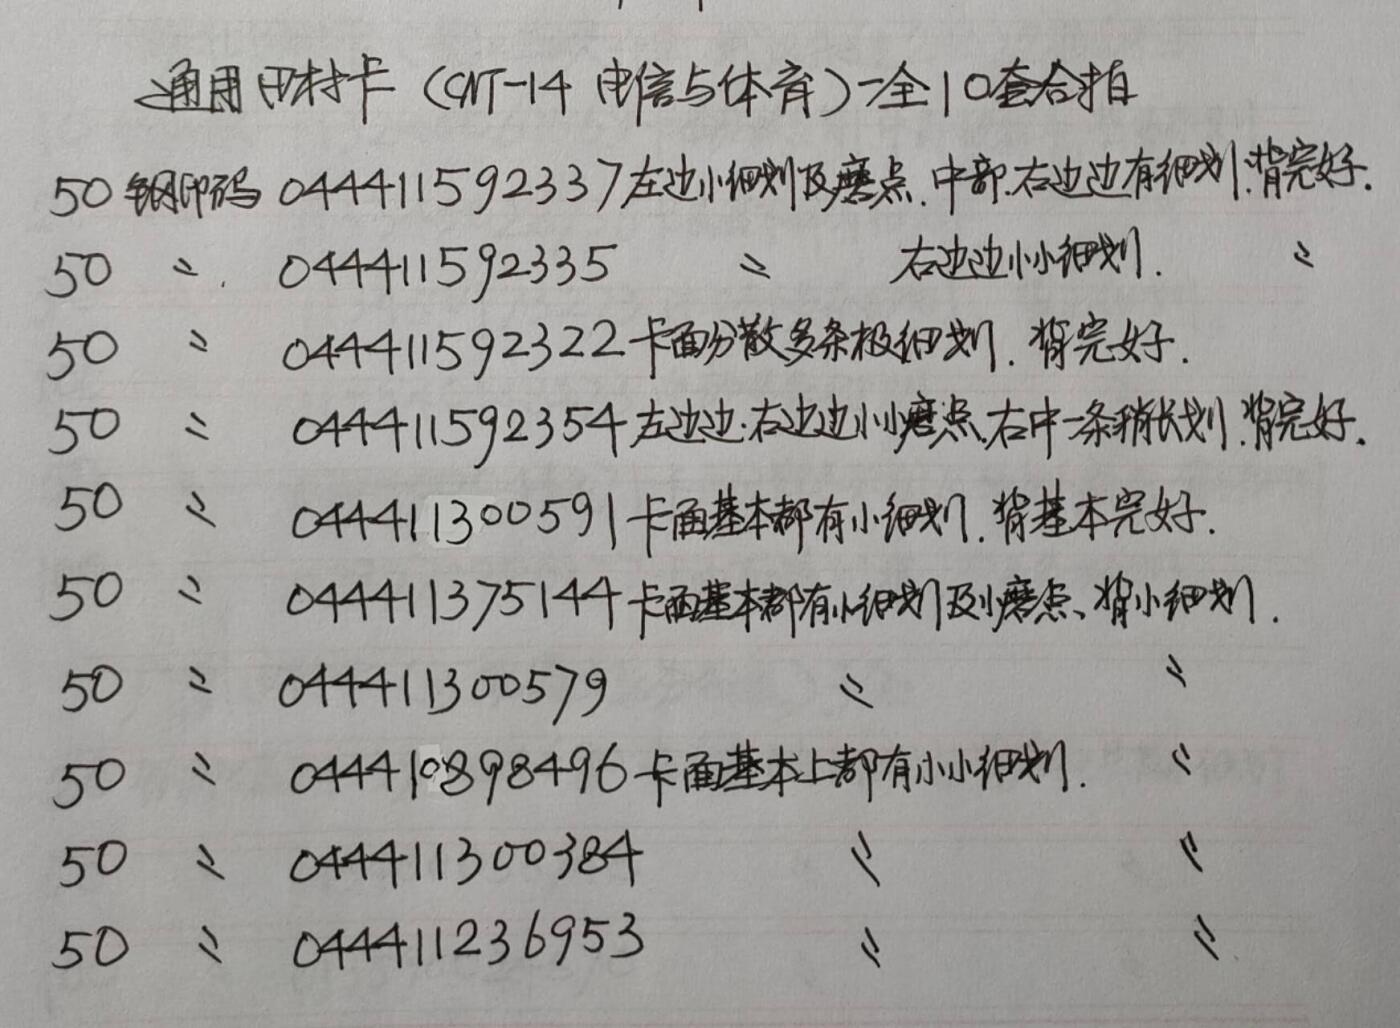 通用田村卡（CNT-14 电信与体育）-全10套合拍
50 钢印码 044411592337左边小细划及磨点.中部.右边边有细划.背完好.
50 〃. 044411592335 〃 右边边小小细划. 〃
50 〃 044411592322卡面分散多条极细划.背完好.
50 〃 044411592354左边边.右边边小小磨点.右中一条稍长划.背完好.
50 〃 044411300591卡面基本都有小细划.背基本完好.
50 〃 044411375144卡面基本都有小细划及小磨点、背小细划.
50 〃 044411300579 〃 〃
50 〃 044410898496卡面基本上都有小小细划. 〃
50 〃 044411300384 〃 〃
50 〃 044411236953 〃 〃